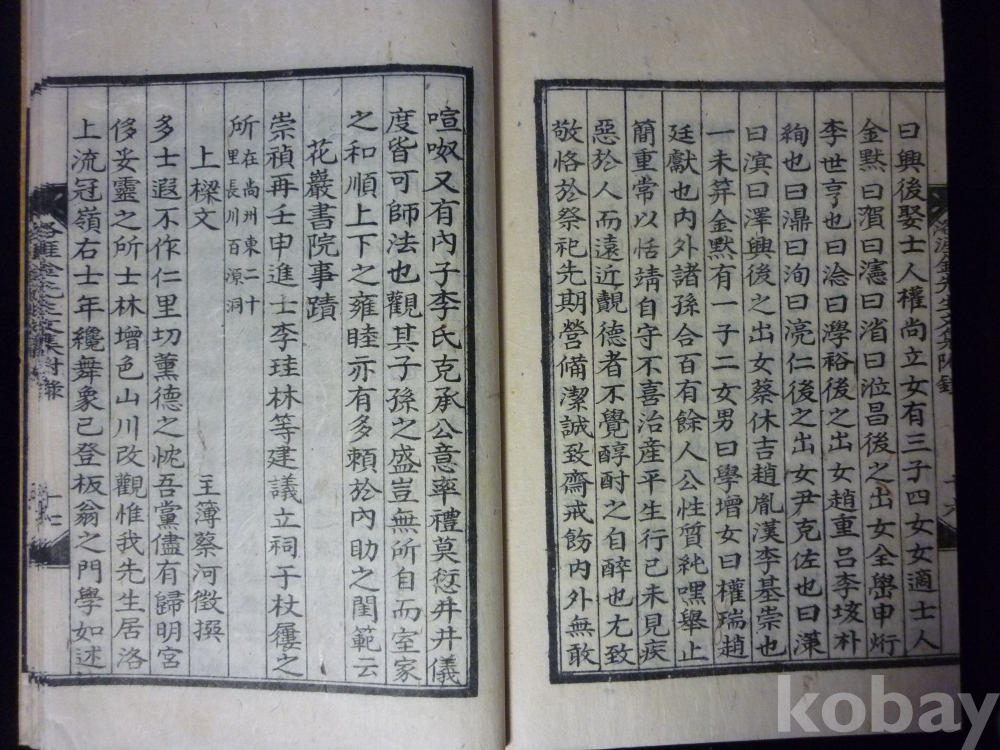 曰興後娶士人權尚立女有三子四女女適士人
金默曰濵曰濾曰渻曰涖昌後之出女全嶨申烆
李世亨也曰淰曰學裕後之出女趙重呂李垓朴
絢也曰濎曰洵曰湸仁後之出女尹克佐也曰藻
曰滇曰澤興後之出女蔡休吉趙胤漢李基崇也
一未筓金默有一子二女男曰學增女曰權瑞趙
廷獻也內外諸孫合百有餘人公性質純嘿舉止
簡重常以恬靖自守不喜治産平生行已未見疾
惡於人而遠近覿德者不覺醇酎之自醉也尤致
敬恪於祭祀先期營備潔誠致齋戒飭內外無敢
喧呶又有內子李氏克承公意率禮莫愆井井儀
度皆可師法也觀其子孫之盛豈無所自而室家
之和順上下之雍睦亦有多賴於內助之閨範云
花巖書院事蹟
崇禎再壬申進士李珪林等建議立祠于杖屨之
所在尚州東二十里長川百源洞
上樑文 主簿蔡河徵撰
多士遐不作仁里切薰德之忱吾黨儘有歸明宮
侈妥靈之所士林增色山川改觀惟我先生居洛
上流冠嶺右士年纔舞象已登板翁之門學如述
kobay